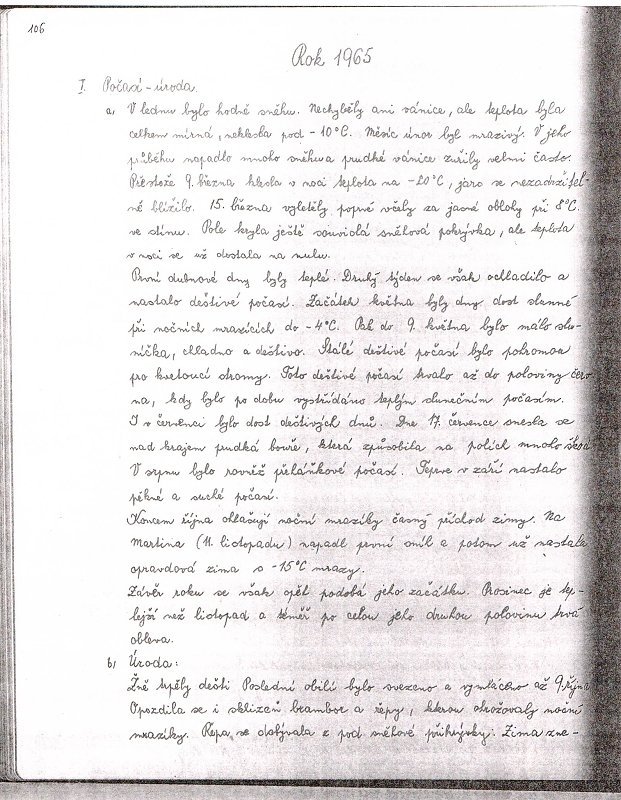 106
Rok 1965
I. Počasí - úroda.
a, V lednu bylo hodně sněhu. Nechyběly ani vánice, ale teplota byla
celkem mírná, neklesla pod -10°C. Měsíc únor byl mrazivý. V jeho
průběhu napadlo mnoho sněhu a prudké vánice zuřily velmi často.
Přestože 9. března klesla v noci teplota na -20°C, jaro se nezadržitel-
ně blížilo. 15. března vyletěly poprvé včely za jasné oblohy při 8°C.
ve stínu. Pole kryla ještě souvislá sněhová pokrývka, ale teplota
v noci se už dostala na nulu.
První dubnové dny byly teplé. Druhý týden se však ochladilo a
nastalo deštivé počasí. Začátek května byly dny dost slunné
při nočních mrazících do -4°C. Pak do 9. května bylo málo slu-
níčka, chladno a deštivo. Stálé deštivé počasí bylo pohromou
pro kvetoucí stromy. Toto deštivé počasí trvalo až do poloviny červ
na, kdy bylo po dobu vystřídáno teplým slunečním počasím.
I v červenci bylo dost deštivých dnů. Dne 17. července snesla se
nad krajem prudká bouře, která způsobila na polích mnoho škod
V srpnu bylo rovněž přeháňkové počasí. Teprve v září nastalo
pěkné a suché počasí.
Koncem října ohlašují noční mrazíky časný příchod zimy. Na
Martina (11. listopadu) napadl první sníh a potom už nastala
opravdová zima s -15°C mrazy.
Závěr roku se však opět podobá jeho začátku. Prosinec je tep-
lejší než listopad a téměř po celou jeho druhou polovinu trvá
obleva.
b, Úroda:
Žně trpěly dešti Poslední obilí bylo svezeno a vymláceno až 9. října
Opozdila se i sklizeň brambor a řepy, kterou ohrožovaly noční
mrazíky. Řepa se dobývala z pod sněhové přikrývky. Zima zne-